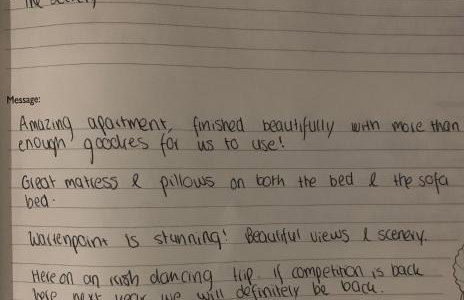 Message:
Amazing apartment, finished beautifully with more than
enough goodies for us to use!
Great matress & pillows on both the bed & the sofa
bed.
Warrenpoint is stunning! Beautiful views & scenery.
Here on an irish dancing trip. If competition is back
here next year we will definitely be back.